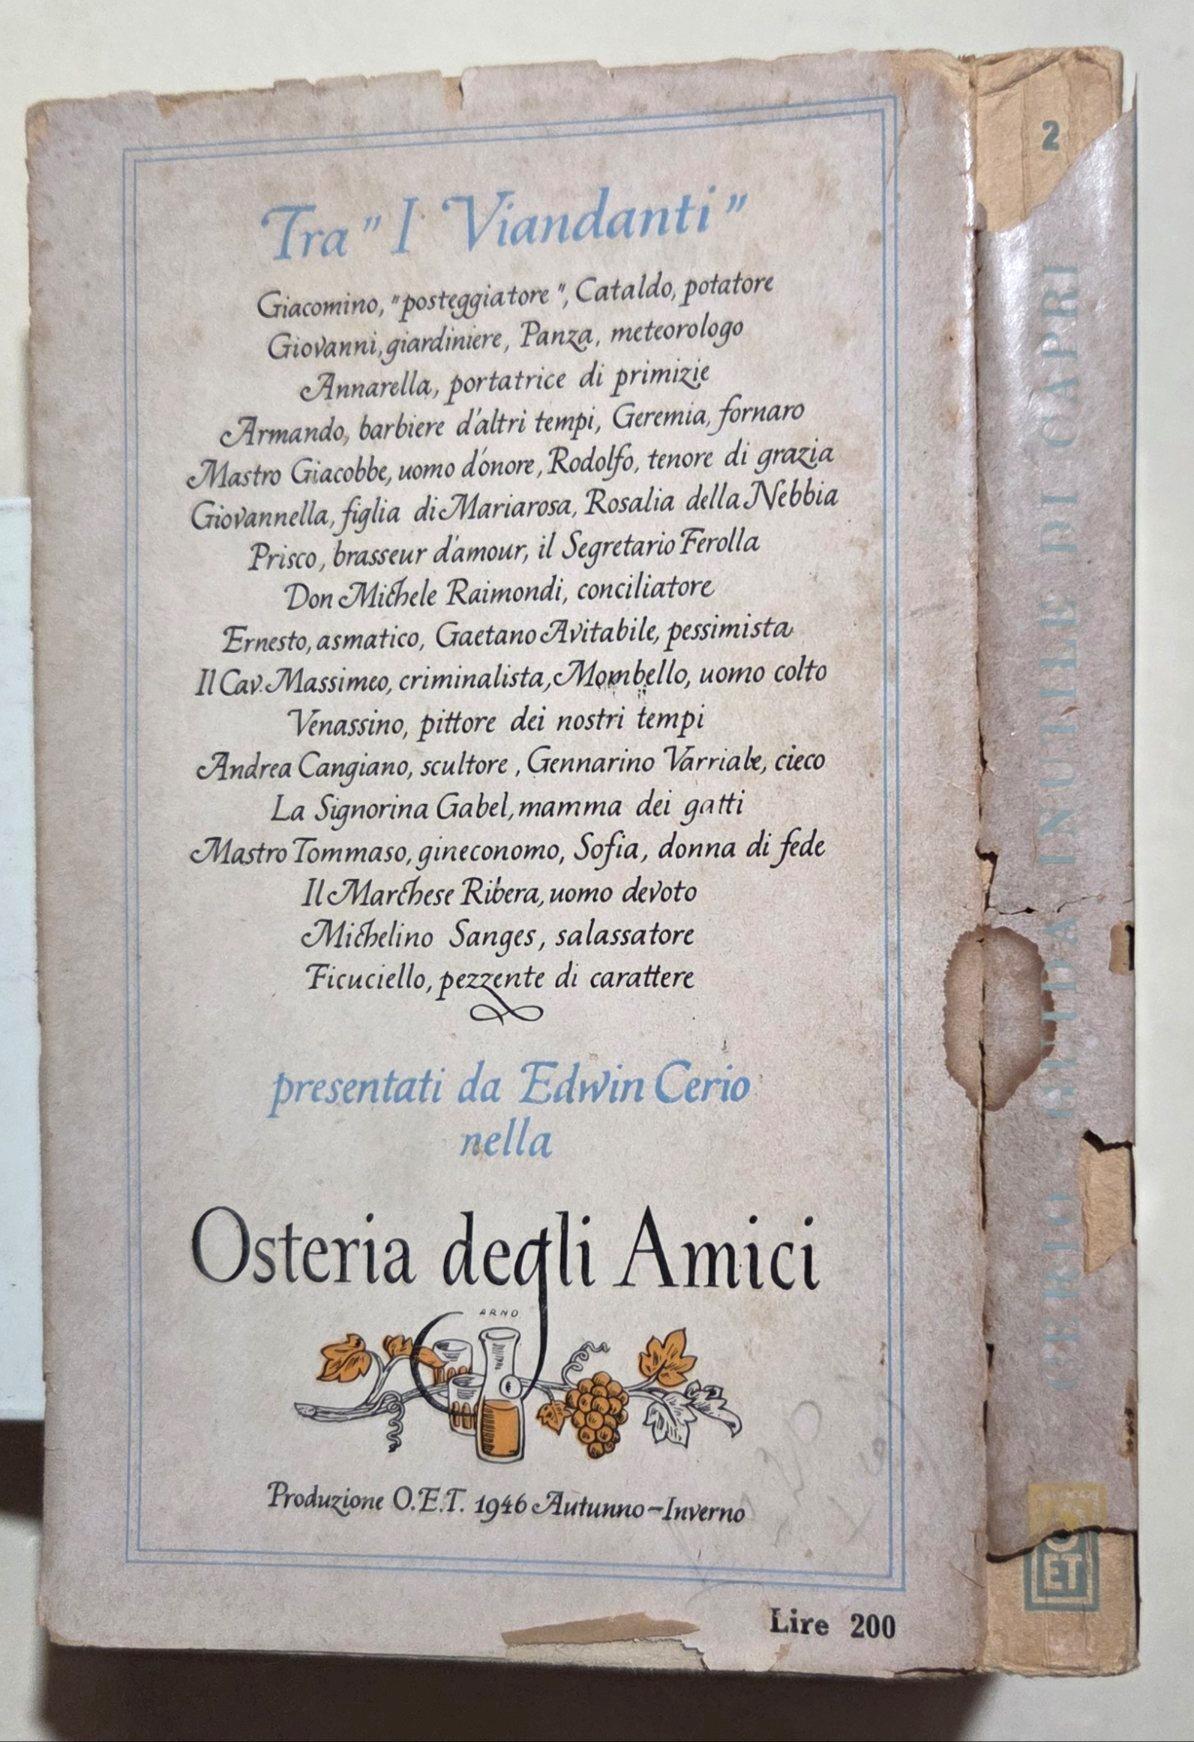 Tra "I Viandanti"
Giacomino, "posteggiatore", Cataldo, potatore
Giovanni, giardiniere, Panza, meteorologo
Annarella, portatrice di primizie
Armando, barbiere d'altri tempi, Geremia, fornaro
Mastro Giacobbe, uomo d'onore, Rodolfo, tenore di grazia
Giovannella, figlia di Mariarosa, Rosalia della Nebbia
Prisco, brasseur d'amour, il Segretario Ferolla
Don Michele Raimondi, conciliatore
Ernesto, asmatico, Gaetano Avitabile, pessimista
Il Cav. Massimeo, criminalista, Mombello, uomo colto
Venassino, pittore dei nostri tempi
Andrea Cangiano, scultore, Gennarino Varriale, cieco
La Signorina Gabel, mamma dei gatti
Mastro Tommaso, gineconomo, Sofia, donna di fede
Il Marchese Ribera, uomo devoto
Michelino Sanges, salassatore
Ficuciello, pezzente di carattere
presentati da Edwin Cerio
nella
Osteria degli Amici
ARNO
Produzione O.E.T. 1946 Autunno-Inverno
Lire 200
2
CERIO GUIDA INUTILE DI CAPRI
OET